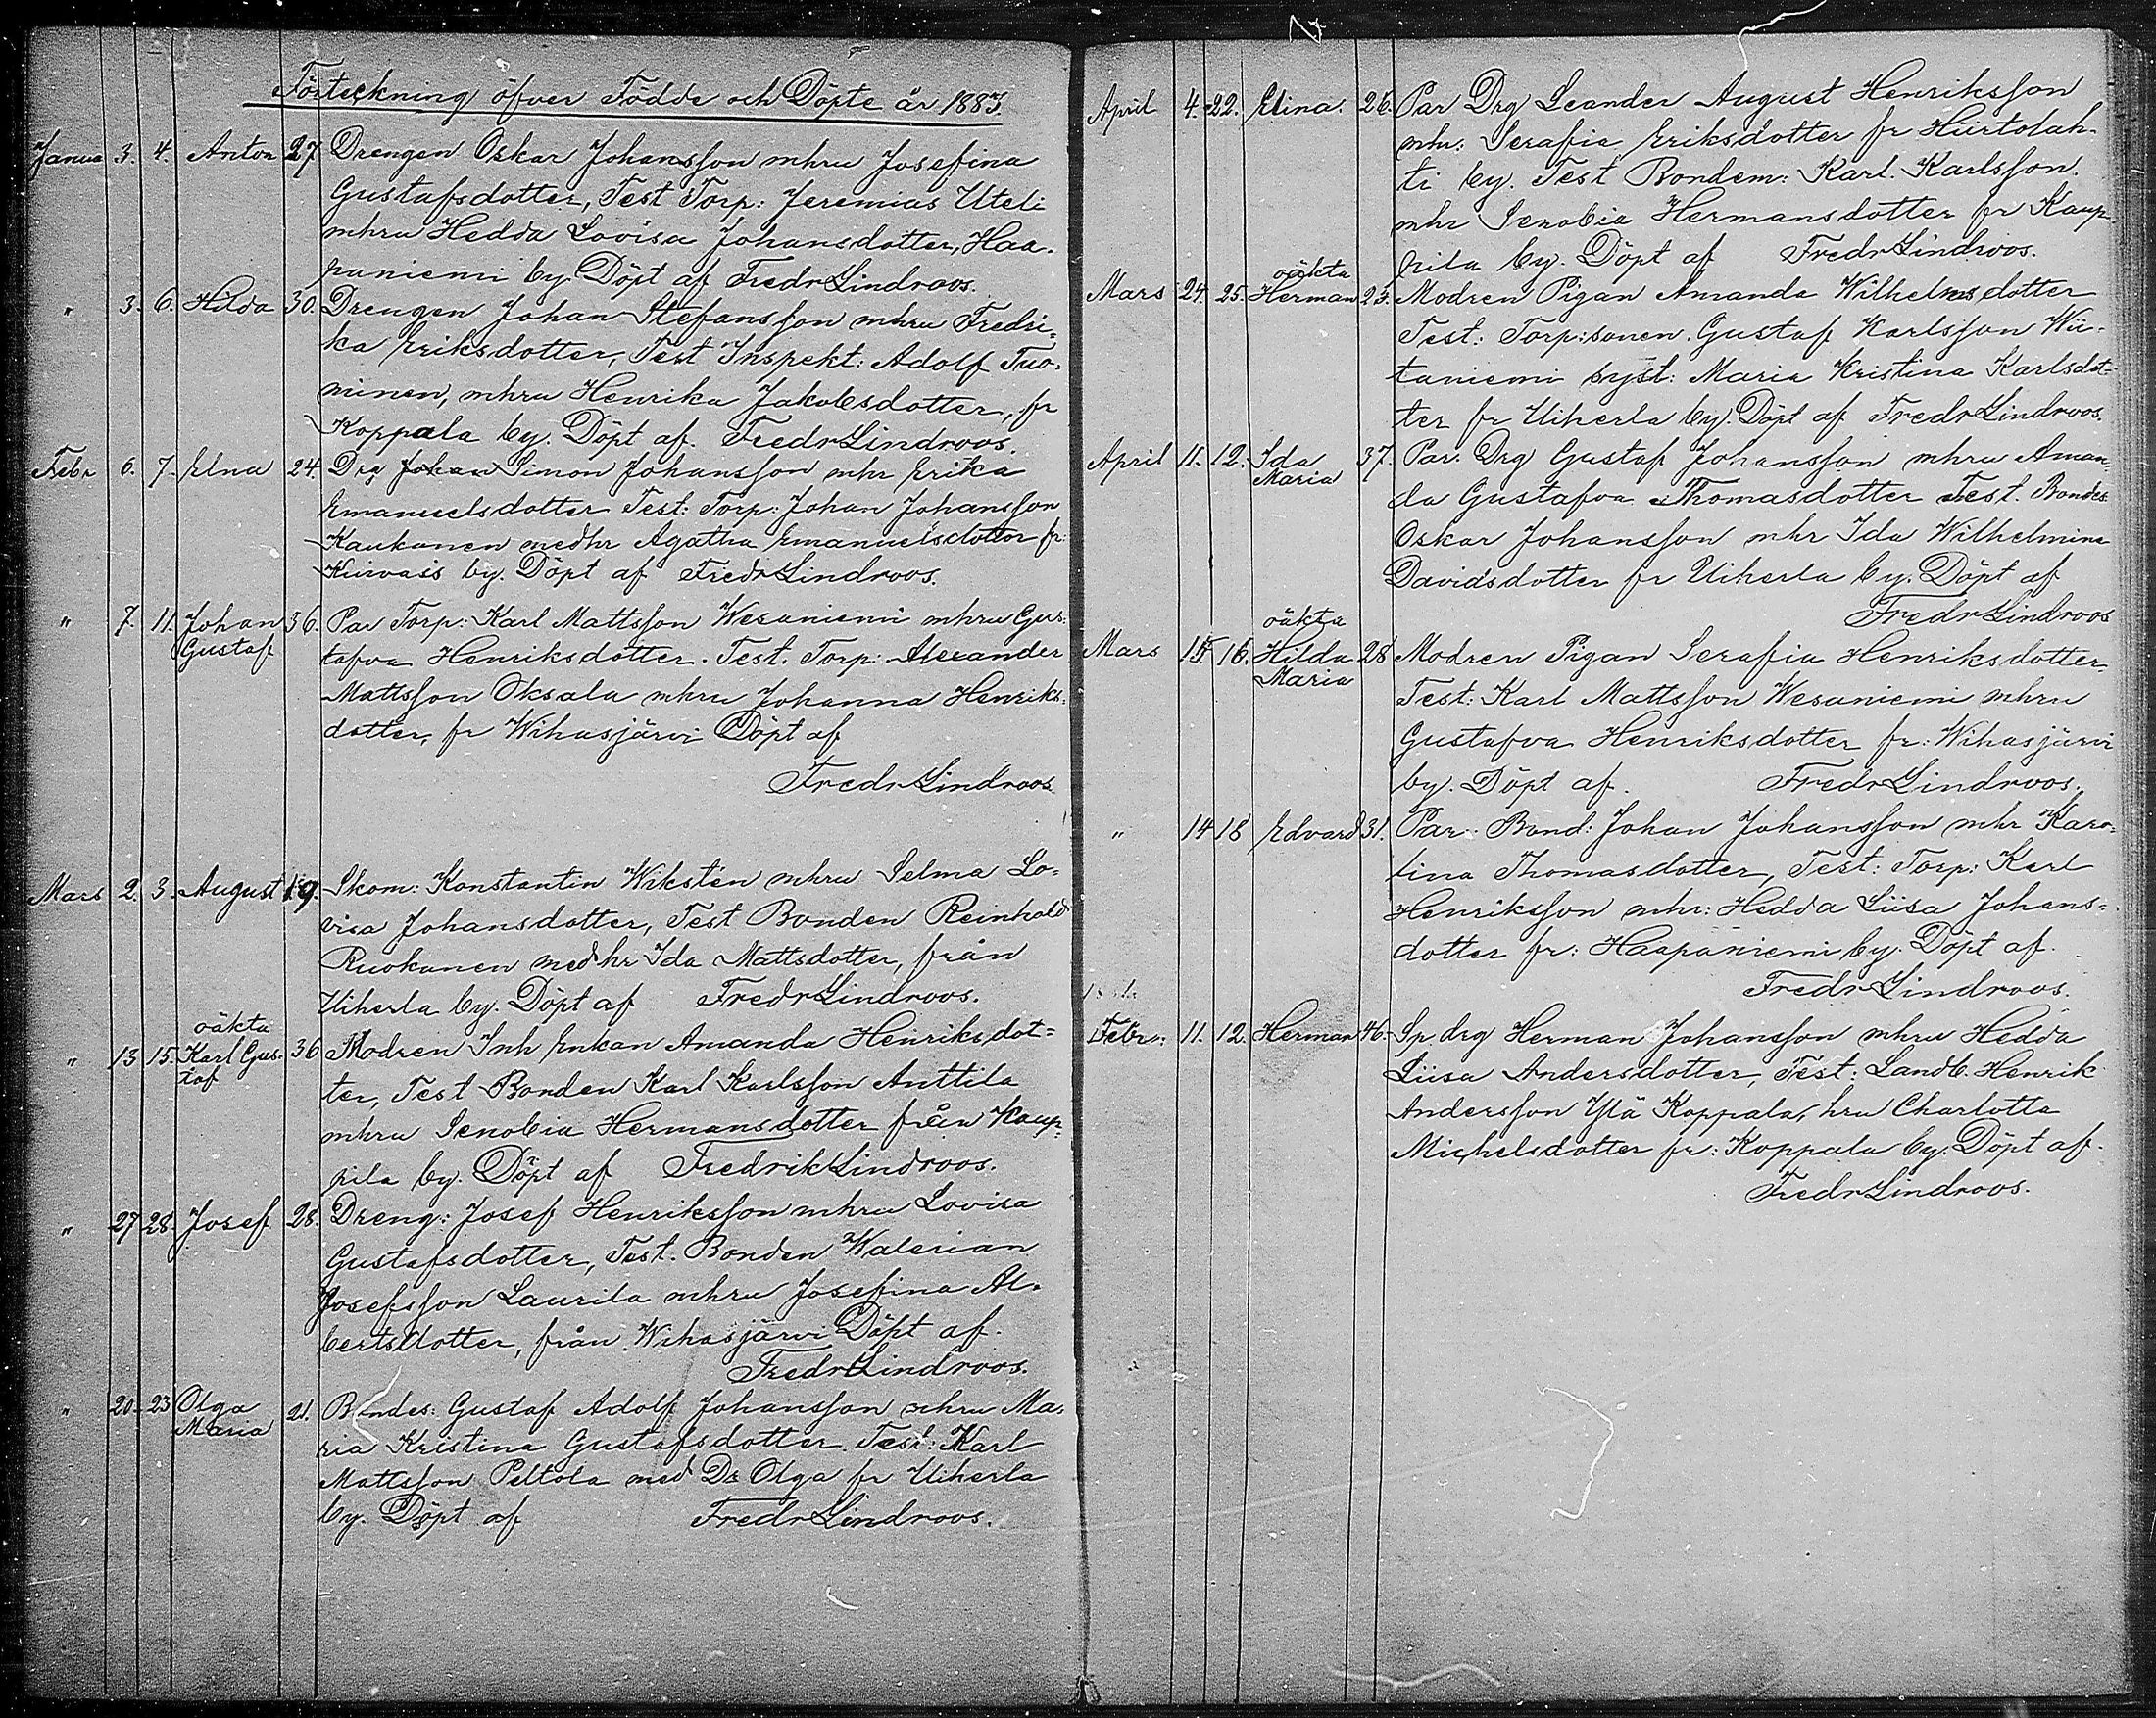 Förteckning öfver Födde och Döpte år 1883.
Janua 3. 4. Anton 27 Drengen Oskar Johansson mhru Josefina
Gustafsdotter, Test Torp: Jeremias Uteli
mhru Hedda Lovisa Johansdotter, Haa-
paniemi by. Döpt af Fredr Lindroos.
" 3. 6. Hilda 30. Drengen Johan Stefansson mhru Fredri-
ka Eriksdotter, Test Inspekt: Adolf Tuo-
minen, mhru Henrika Jakobsdotter, fr
Koppala by. Döpt af. Fredr Lindroos.
Febr 6. 7. Elna 24. Drg Johan Simon Johansson mhr Erika
Emanuelsdotter Test: Torp: Johan Johansson
Kaukanen medhr Agatha Emanuelsdotter fr:
Kuivais by. Döpt af Fredr Lindroos.
" 7. 11. Johan 36. Par Torp: Karl Mattsson Wesaniemi mhru Gus-
Gustaf tafva Henriksdotter. Test. Torp: Alexander
Mattsson Oksala mhru Johanna Henriks-
dotter, fr Wihasjärvi Döpt af
Fredr Lindroos
Mars 2. 3. August 19. Skom: Konstantin Wikstén mhru Selma Lo-
visa Johansdotter, Test Bonden Reinhold
Ruokanen medhr Ida Mattsdotter, från
Uiherla by. Döpt af Fredr Lindroos.
oäkta
" 13 15. Karl Gus- 36 Modren Inh Enkan Amanda Henriksdot-
taf ter, Test Bonden Karl Karlsson Anttila
mhru Senobia Hermansdotter från Kaup-
pila by. Döpt af Fredrik Lindroos.
" 27 28. Josef 28. Dreng: Josef Henriksson mhru Lovisa
Gustafsdotter, Test. Bonden Walerian
Josefsson Laurila mhru Josefina Al-
bertsdotter, från Wihasjärvi Döpt af.
Fredr Lindroos.
" 20. 23 Olga 21. Bondes: Gustaf Adolf Johansson mhru Ma-
Maria ria Kristina Gustafsdotter. Test: Karl
Mattsson Peltola med Dr Olga fr Uiherla
by. Döpt af Fredr Lindroos.
April 4. 22. Elina. 26. Par Drg Leander August Henriksson
mhr: Serafia Eriksdotter fr Hiirtolah-
ti by. Test Bondem: Karl. Karlsson.
mhr Senobia Hermansdotter fr Kaup-
pila by. Döpt af Fredr Lindroos.
oäkta
Mars 24. 25. Herman 23. Modren Pigan Amanda Wilhelmsdotter
Test: Torp:sonen. Gustaf Karlsson Wii-
taniemi syst: Maria Kristina Karlsdot-
ter fr Uiherla by. Döpt af Fredr Lindroos.
April 11. 12. Ida 37. Par. Drg Gustaf Johansson mhru Aman-
Maria da Gustafva Thomasdotter Test. Bondes
Oskar Johansson mhr Ida Wilhelmina
Davidsdotter fr Uiherla by. Döpt af
Fredr Lindroos
oäkta
Mars 15 16. Hilda 28 Modren Pigan Serafia Henriksdotter
Maria Test: Karl Mattsson Wesaniemi mhru
Gustafva Henriksdotter fr: Wihasjärvi
by. Döpt af. Fredr Lindroos.
" 14 18 Edvard 31. Par. Bond: Johan Johansson mhr Karo-
lina Thomasdotter, Test: Torp: Karl
Henriksson mhr: Hedda Liisa Johans-
dotter fr: Haapaniemi by. Döpt af.
Fredr Lindroos.
Febr. 11. 12. Herman 46. Sp. drg Herman Johansson mhru Hedda
Liisa Andersdotter, Test: Landb. Henrik
Andersson Ylä Koppala, hru Charlotta
Michelsdotter fr: Koppala by. Döpt af.
Fredr Lindroos.